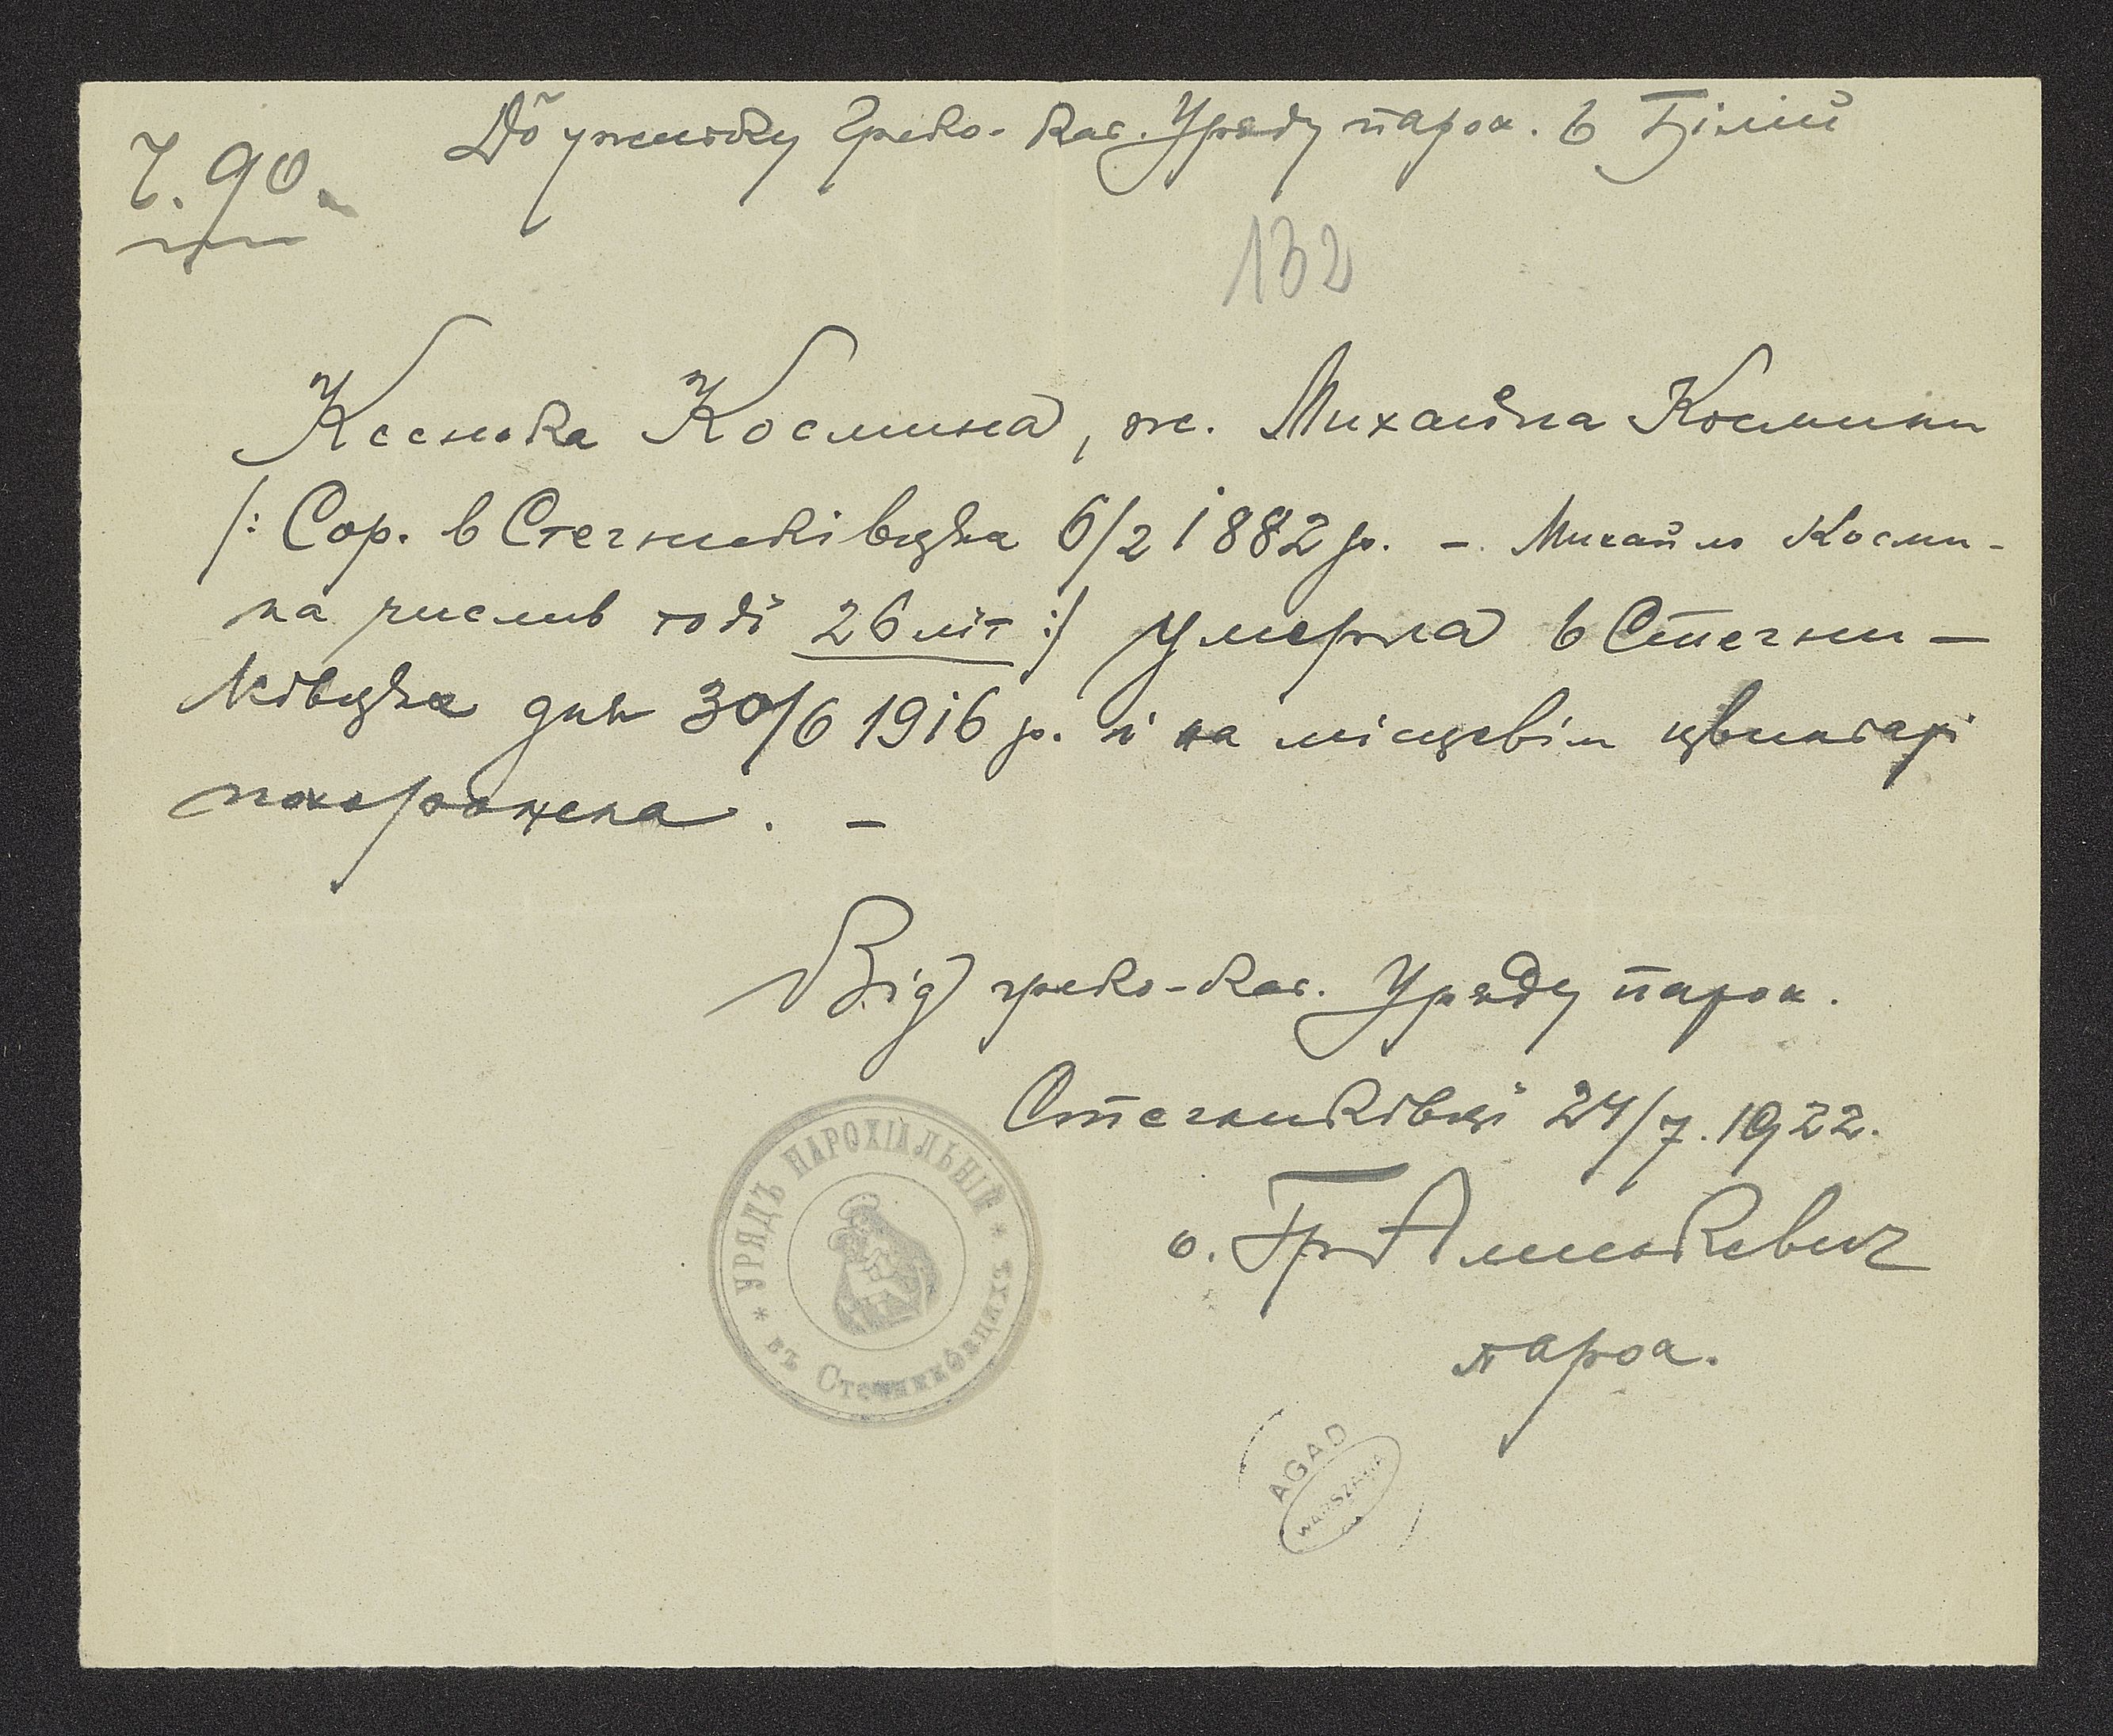 Ч. 90.
До ужитку Греко-кат. Уряду парох. в Білій
132
Ксенька Космина, ж. Михайла Космини
/: Сор. в Стегниківцях 6/2 1882 р. – Михайло Косми-
на числив тоді 26 літ :/ умерла в Стегни-
ківцях дня 30/6 1916 р. і на місцевім цвинтарі
похоронена. –
Від греко-кат. Уряду парох.
Стегниківці 24/7. 1922.
о. Гр
парох.
* УРЯДЪ ПАРОХІАЛЬНІЙ *
въ Стегниковцихъ
AGAD
WARSZAWA